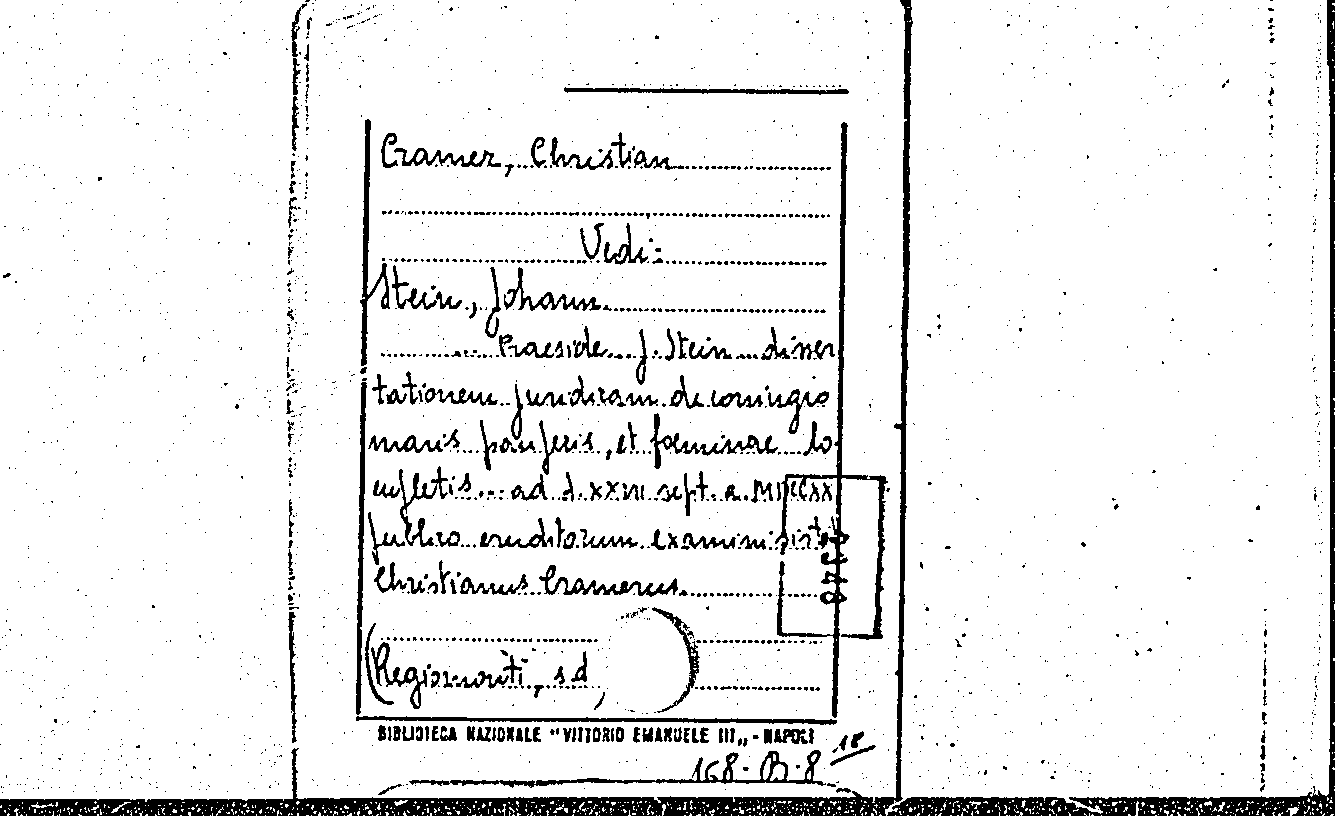 Cramer, Christian
Vedi:
Stein, Johann
... Praeside J. Stein disser
tationem juridicam de coniugio
maris pauperis, et foeminae lo-
cupletis... ad d. XXVII sept. a. MDCCXX
publico eruditorum examini sistet
Christianus Cramerus.
(Regiomonti, s d )
BIBLIOTECA NAZIONALE "VITTORIO EMANUELE III„ - NAPOLI
168-B-8 18